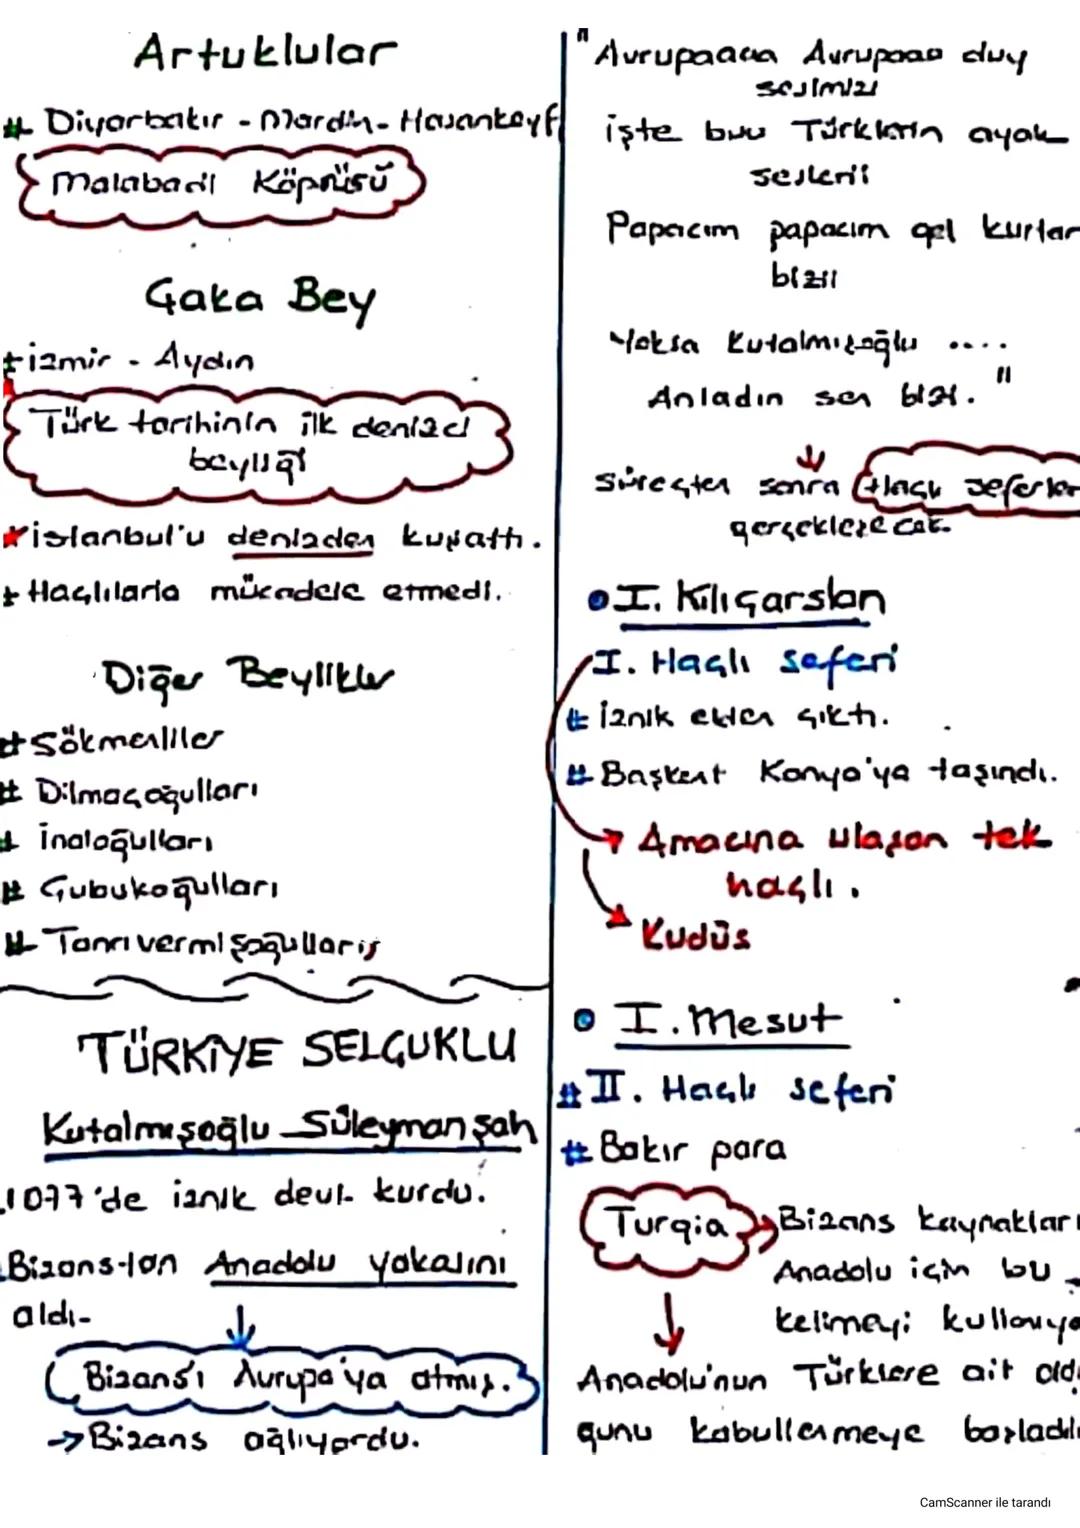 Artuklular
# Diyarbakır - Mardin - Hasankeyf
Malabadi Köprüsü
Çaka Bey
+ izmir - Aydın
Türk tarihinin ilk denizci
beyliği
* istanbul'u denizden kuşattı.
+ Haçlılarla mücadele etmedi.
Diğer Beylikler
# Sökmenliler
# Dilmaçoğulları
# İnaloğulları
# Çubukoğulları
# Tanrıvermişoğulları
TÜRKİYE SELÇUKLU
Kutalmışoğlu Süleyman Şah
1077'de iznik devl. kurdu.
Bizans'tan Anadolu yakasını
aldı.
Bizans'ı Avrupa'ya atmış.
→ Bizans ağlıyordu.
"Avrupaaaa Avrupaaa duy
sesimizi
işte buu Türklerin ayak
sesleri
Papacım papacım gel kurtar
bizii
Yoksa Kutalmışoğlu ....
Anladın sen bizi."
süreçten sonra Haçlı seferler
gerçekleşecek.
• I. Kılıçarslan
I. Haçlı Seferi
# İznik elden çıktı.
# Başkent Konya'ya taşındı.
→ Amacına ulaşan tek
haçlı.
→ Kudüs
• I. Mesut
# II. Haçlı seferi
# Bakır para
Turqia → Bizans kaynakları
Anadolu için bu
kelimeyi kullanıyo
Anadolu'nun Türklere ait oldu
ğunu kabullenmeye başladıl
CamScanner ile tarandı